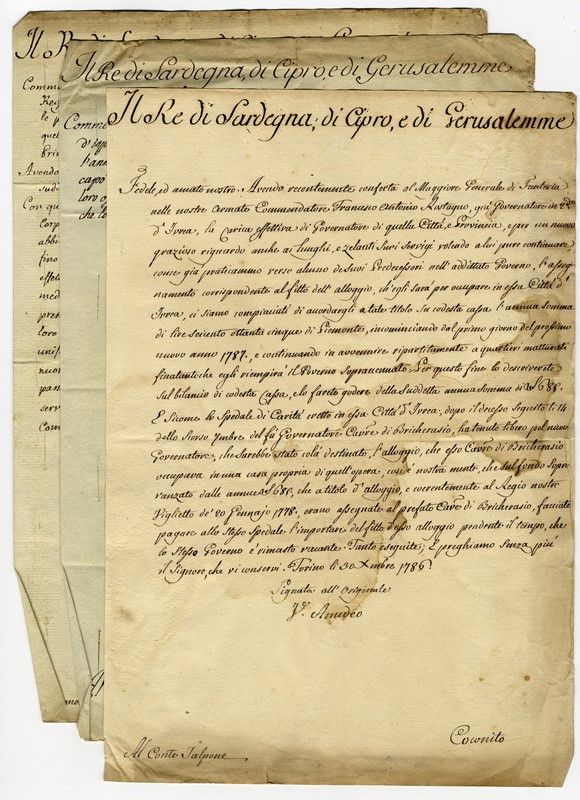 Il Re di Sardegna, di Cipro, e di Gerusalemme
Il Re di Sardegna, di Cipro, e di Gerusalemme
Fedele, ed amato nostro. Avendo recentemente conferta al Maggiore Generale di Fanteria
nelle nostre Armate Commendatore Francesco Antonio Rastagno, già Governatore in 2.do
d'Ivrea, la carica effettiva di Governatore di quella Città, e Provincia, e per un nuovo
grazioso riguardo anche ai lunghi, e zelanti Suoi Servigi volendo a lui pure continuare
come già praticammo verso alcuno de' Suoi Predecessori nell'additato Governo, l'asseg-
namento corrispondente al fitto dell'alloggio, ch'egli Sarà per occupare in essa Città d'
Ivrea, ci siamo compiaciuti di accordargli a tale titolo Su codesta cassa l'annua Somma
di lire Seicento ottanta cinque di Piemonte, incominciando dal primo giorno del prossimo
nuovo anno 1787, e continuando in avvenire ripartitamente a quartieri maturati
finatanto che egli riempirà il Governo Sopracennato. Per questo fine lo descriverete
Sul bilancio di codesta Cassa, e lo farete godere della Suddetta annua Somma di L 685.
E Siccome lo Spedale di Carità eretto in essa Città d'Ivrea, dopo il decesso Seguito li 14
dello Scorso 9mbre del fù Governatore Cavre di Bricherasio, ha tenuto libero pel nuovo
Governatore, che Sarebbe stato colà destinato, l'alloggio, che esso Cavre di Bricherasio
occupava in una casa propria di quell'opera, così è nostra mente, che Sul fondo Sopra-
vanzato dalle annue L 685, che a titolo d'alloggio, e coerentemente al Regio nostro
Viglietto de' 20 Gennajo 1778, erano assegnate al prefato Cavre di Bricherasio, facciate
pagare allo Stesso Spedale l'importare del fitto d'esso alloggio pendente il tempo, che
lo Stesso Governo è rimasto vacante. Tanto eseguite; E preghiamo Senza più
il Signore, che vi conservi. Torino li 30 Xmbre 1786
Signato all'Originale
V.° Amedeo
Coconito
Al Conte Salpone